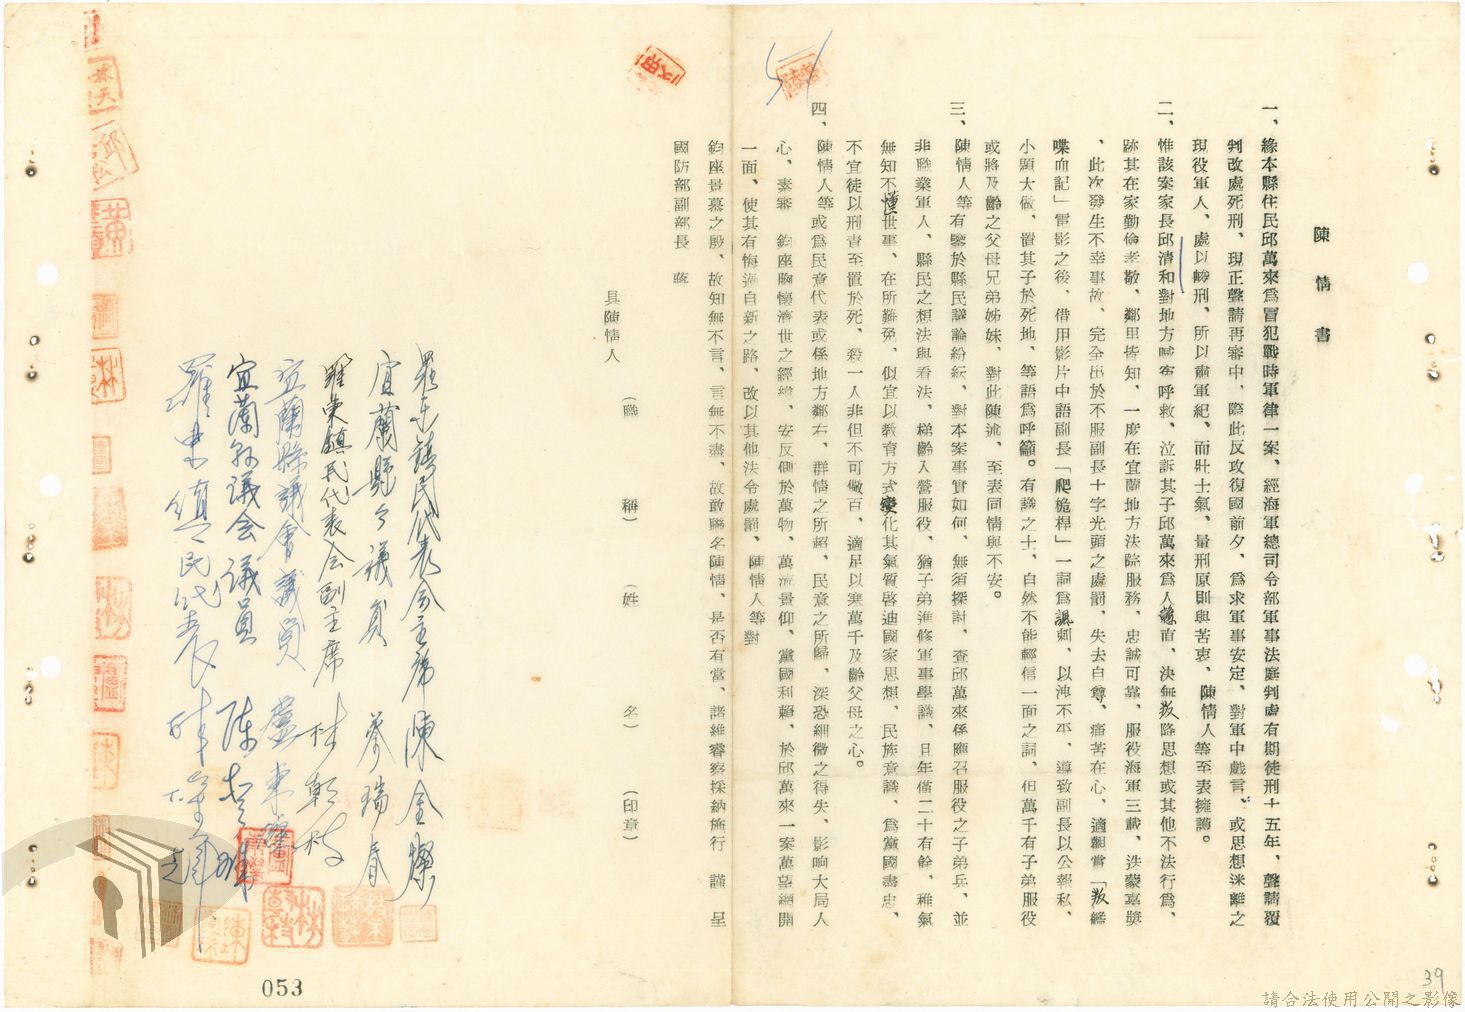 陳情書
一、緣本縣住民邱萬來為冒犯戰時軍律一案、經海軍總司令部軍事法庭判處有期徒刑十五年、聲請覆
判改處死刑、現正聲請再審中、際此反攻復國前夕、為求軍事安定、對軍中戲言、或思想迷離之
現役軍人、處以峻刑、所以肅軍紀、而壯士氣、量刑原則與苦衷、陳情人等至表擁護。
二、惟該案家長邱清和對地方喊寃呼救、泣訴其子邱萬來為人憨直、決無叛路思想或其他不法行為、
跡其在家勤儉孝敬、鄰里皆知、一度在宜蘭地方法院服務、忠誠可靠、服役海軍三載、迭蒙嘉獎
、此次發生不幸事故、完全出於不服副長十字光頭之處罰、失去自尊、痛苦在心、適觀賞「叛艦
喋血記」電影之後、借用影片中語副長「爬桅桿」一詞為諷刺、以洩不平、導致副長以公報私、
小題大做、置其子於死地、等語為呼籲。有識之士、自然不能輕信一面之詞、但萬千有子弟服役
或將及齡之父母兄弟姊妹、對此陳述、至表同情與不安。
三、陳情人等有鑒於縣民議論紛紜、對本案事實如何、無須探討、查邱萬來係應召服役之子弟兵、並
非職業軍人、縣民之想法與看法、梯齡入營服役、猶子弟進修軍事學識、且年僅二十有餘、稚氣
無知不懂世事、在所難免、似宜以教育方式變化其氣質啓迪國家思想、民族意識、為黨國盡忠、
不宜徒以刑責至置於死、殺一人非但不可儆百、適足以寒萬千及齡父母之心。
四、陳情人等或為民意代表或係地方鄰右、群情之所趨、民意之所歸、深恐細微之得失、影响大局人
心、素審　鈞座胸懷濟世之經綸、安反側於萬物、萬流景仰、黨國利賴、於邱萬來一案萬望網開
一面、使其有悔過自新之路、改以其他法令處罰、陳情人等對
鈞座景慕之殷、故知無不言、言無不盡、故敢聯名陳情、是否有當、諸維睿察採納施行　謹　呈
國防部副部長　蔣
具陳情人　（職　稱）　（姓　名）　（印章）
羅東鎮民代表会主席　陳金燦
宜蘭縣々議員　蔡瑞春
羅東鎮民代表会副主席　林朝枝
宜蘭縣議會議員　盧東
宜蘭縣議会議員　陳
羅東鎮々民代表
053
39
請合法使用公開之影像